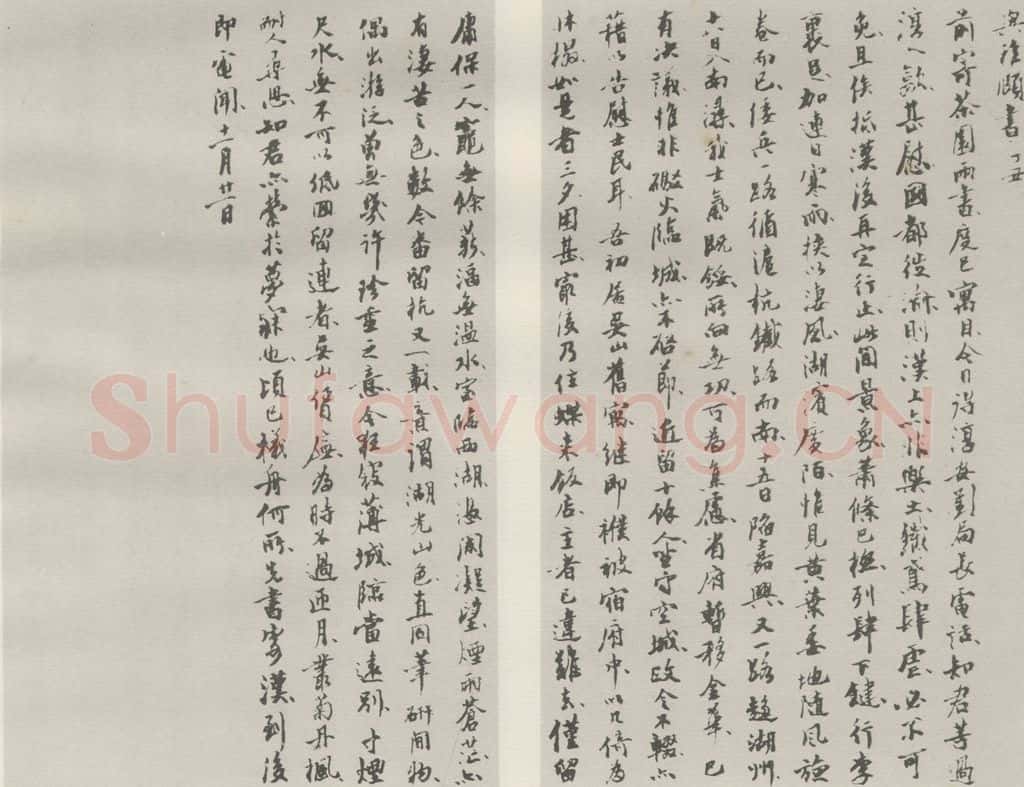 與雅頤書 丁丑
前寄茶園兩書度已寓目今日得淳安劉局長電話知君等過
淳入歙甚慰國都徙渝則漢上亦非樂土鐵鳶肆虐必不可
免且俟抵漢後再定行止此間景象蕭條已極列肆下鍵行李
裹足加連日寒雨挾以淒風湖濱廣陌惟見黄葉委地隨風旋
卷而已倭兵一路循滬杭鐵路而南十五日陷嘉興又一路趨湖州
十八日入南潯我士氣既餒所向無功可為焦慮省府暫移金華已
有决議惟非礮火臨城亦不啓節近留十餘人坐守空城政令不輟亦
藉以告慰士民耳吾初居吳山舊寓繼即襆被宿府中以几倚為
牀榻如是者三夕困甚最後乃住蝶来飯店主者已違難去僅留
庸保一人竈無餘薪湢無溫水室臨西湖海闊凝望煙雨蒼茫亦
有淒苦之色數今番留杭又一載音謂湖光山色直同筆研間物
偶出游泛曾無幾許珍重之意今狂寇薄城際當遠別寸煙
尺水無不可以低回留連者吳山僧廡為時不過匝月叢菊丹楓
耐人尋思知君亦縈於夢寐也頃已檥舟何所先書寄漢到後
即電聞十一月廿一日
Shufawang.CN